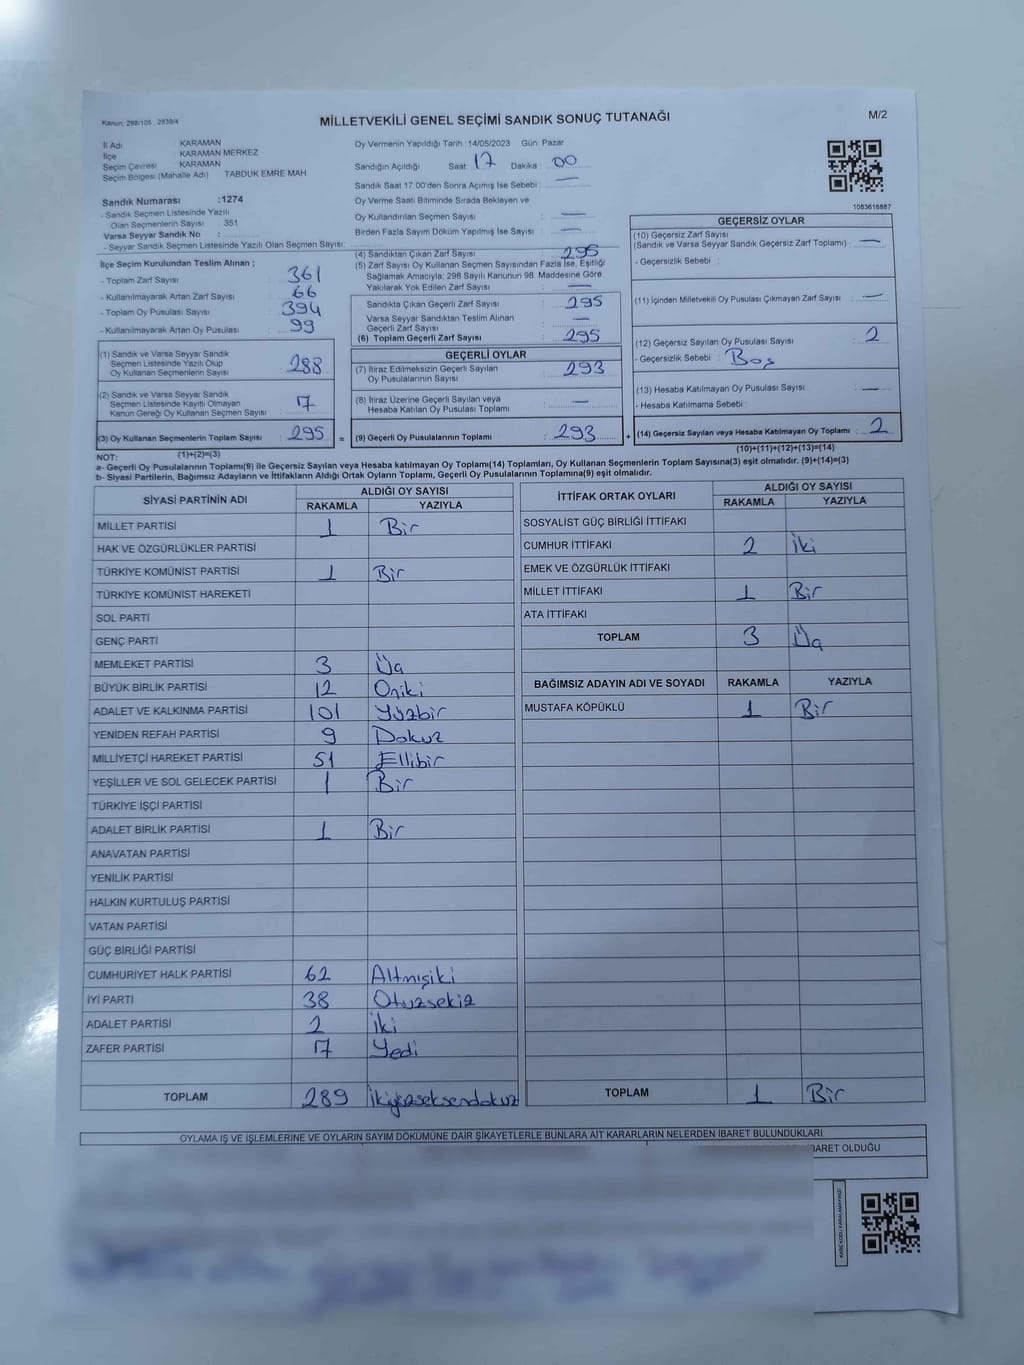 Kanun: 298/105 , 2839/4
MİLLETVEKİLİ GENEL SEÇİMİ SANDIK SONUÇ TUTANAĞI
M/2
İl Adı : KARAMAN
İlçe : KARAMAN MERKEZ
Seçim Çevresi : KARAMAN
Seçim Bölgesi (Mahalle Adı) : TABDUK EMRE MAH.
Sandık Numarası :1274
- Sandık Seçmen Listesinde Yazılı
Olan Seçmenlerin Sayısı : 351
Varsa Seyyar Sandık No :
- Seyyar Sandık Seçmen Listesinde Yazılı Olan Seçmen Sayısı:
Oy Vermenin Yapıldığı Tarih :14/05/2023 Gün: Pazar
Sandığın Açıldığı Saat: 17 Dakika : 00
Sandık Saat 17:00'den Sonra Açımış İse Sebebi : —
Oy Verme Saati Bitiminde Sırada Bekleyen ve
Oy Kullandırılan Seçmen Sayısı : —
Birden Fazla Sayım Döküm Yapılmış İse Sayısı : —
1083616887
İlçe Seçim Kurulundan Teslim Alınan ;
- Toplam Zarf Sayısı : 361
- Kullanılmayarak Artan Zarf Sayısı : 66
- Toplam Oy Pusulası Sayısı : 394
- Kullanılmayarak Artan Oy Pusulası : 99
(1) Sandık ve Varsa Seyyar Sandık
Seçmen Listesinde Yazılı Olup
Oy Kullanan Seçmenlerin Sayısı : 288
(2) Sandık ve Varsa Seyyar Sandık
Seçmen Listesinde Kayıtlı Olmayan
Kanun Gereği Oy Kullanan Seçmen Sayısı : 7
(3) Oy Kullanan Seçmenlerin Toplam Sayısı : 295 =
(1)+(2)=(3)
(4) Sandıktan Çıkan Zarf Sayısı : 295
(5) Zarf Sayısı Oy Kullanan Seçmen Sayısından Fazla İse, Eşitliği
Sağlamak Amacıyla; 298 Sayılı Kanunun 98. Maddesine Göre
Yakılarak Yok Edilen Zarf Sayısı : —
Sandıkta Çıkan Geçerli Zarf Sayısı : 295
Varsa Seyyar Sandıktan Teslim Alınan
Geçerli Zarf Sayısı : —
(6) Toplam Geçerli Zarf Sayısı : 295
GEÇERLİ OYLAR
(7) İtiraz Edilmeksizin Geçerli Sayılan
Oy Pusulalarının Sayısı : 293
(8) İtiraz Üzerine Geçerli Sayılan veya
Hesaba Katılan Oy Pusulası Toplamı : —
(9) Geçerli Oy Pusulalarının Toplamı : 293 +
GEÇERSİZ OYLAR
(10) Geçersiz Zarf Sayısı
(Sandık ve Varsa Seyyar Sandık Geçersiz Zarf Toplamı) : —
- Geçersizlik Sebebi :
(11) İçinden Milletvekili Oy Pusulası Çıkmayan Zarf Sayısı : —
(12) Geçersiz Sayılan Oy Pusulası Sayısı : 2
- Geçersizlik Sebebi : Boş
(13) Hesaba Katılmayan Oy Pusulası Sayısı : —
- Hesaba Katılmama Sebebi :
(14) Geçersiz Sayılan veya Hesaba Katılmayan Oy Toplamı : 2
(10)+(11)+(12)+(13)=(14)
NOT:
a- Geçerli Oy Pusulalarının Toplamı(9) ile Geçersiz Sayılan veya Hesaba katılmayan Oy Toplamı(14) Toplamları, Oy Kullanan Seçmenlerin Toplam Sayısına(3) eşit olmalıdır. (9)+(14)=(3)
b- Siyasi Partilerin, Bağımsız Adayların ve İttifakların Aldığı Ortak Oyların Toplamı, Geçerli Oy Pusulalarının Toplamına(9) eşit olmalıdır.
SİYASİ PARTİNİN ADI ALDIĞI OY SAYISI
RAKAMLA YAZIYLA
MİLLET PARTİSİ 1 Bir
HAK VE ÖZGÜRLÜKLER PARTİSİ
TÜRKİYE KOMÜNİST PARTİSİ 1 Bir
TÜRKİYE KOMÜNİST HAREKETİ
SOL PARTİ
GENÇ PARTİ
MEMLEKET PARTİSİ 3 Üç
BÜYÜK BİRLİK PARTİSİ 12 Oniki
ADALET VE KALKINMA PARTİSİ 101 Yüzbir
YENİDEN REFAH PARTİSİ 9 Dokuz
MİLLİYETÇİ HAREKET PARTİSİ 51 Ellibir
YEŞİLLER VE SOL GELECEK PARTİSİ 1 Bir
TÜRKİYE İŞÇİ PARTİSİ
ADALET BİRLİK PARTİSİ 1 Bir
ANAVATAN PARTİSİ
YENİLİK PARTİSİ
HALKIN KURTULUŞ PARTİSİ
VATAN PARTİSİ
GÜÇ BİRLİĞİ PARTİSİ
CUMHURİYET HALK PARTİSİ 62 Altmışiki
İYİ PARTİ 38 Otuzsekiz
ADALET PARTİSİ 2 İki
ZAFER PARTİSİ 7 Yedi
TOPLAM 289 İkiyüzseksendokuz
İTTİFAK ORTAK OYLARI ALDIĞI OY SAYISI
RAKAMLA YAZIYLA
SOSYALİST GÜÇ BİRLİĞİ İTTİFAKI
CUMHUR İTTİFAKI 2 İki
EMEK VE ÖZGÜRLÜK İTTİFAKI
MİLLET İTTİFAKI 1 Bir
ATA İTTİFAKI
TOPLAM 3 Üç
BAĞIMSIZ ADAYIN ADI VE SOYADI RAKAMLA YAZIYLA
MUSTAFA KÖPÜKLÜ 1 Bir
TOPLAM 1 Bir
OYLAMA İŞ VE İŞLEMLERİNE VE OYLARIN SAYIM DÖKÜMÜNE DAİR ŞİKAYETLERLE BUNLARA AİT KARARLARIN NELERDEN İBARET BULUNDUKLARI
BARET OLDUĞU
KARE KODU KARALAMAYINIZ!